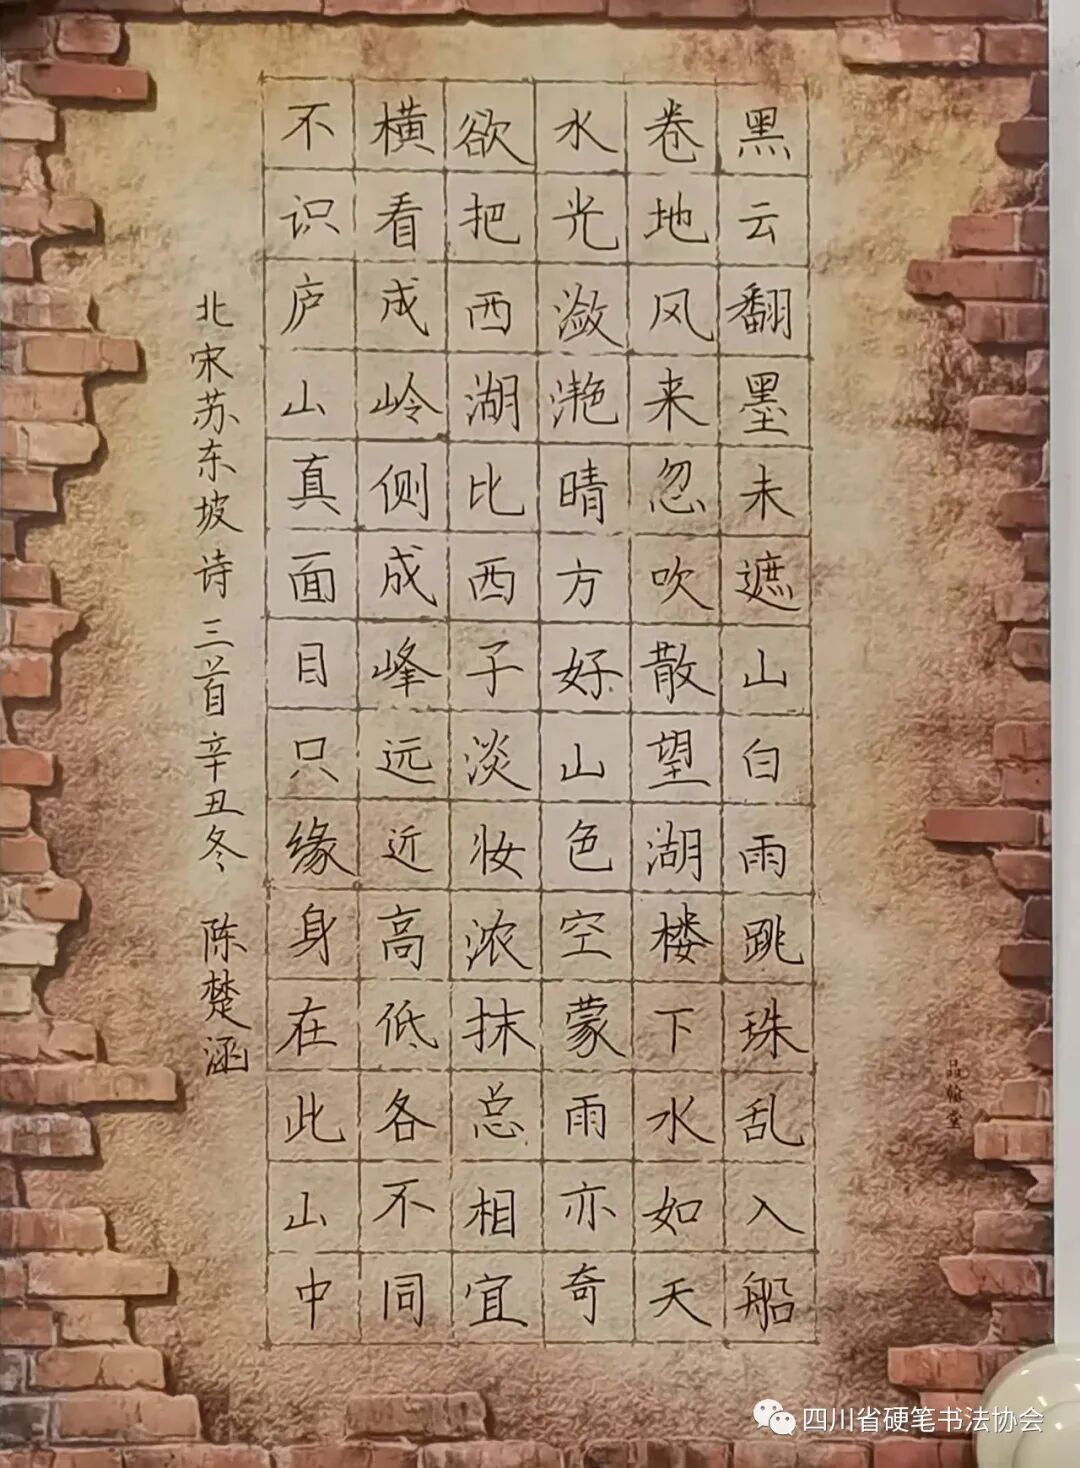 黑云翻墨未遮山白雨跳珠乱入船
卷地风来忽吹散望湖楼下水如天
水光潋滟晴方好山色空蒙雨亦奇
欲把西湖比西子淡妆浓抹总相宜
横看成岭侧成峰远近高低各不同
不识庐山真面目只缘身在此山中
北宋苏东坡诗三首辛丑冬 陈楚涵
品翰堂
四川省硬笔书法协会